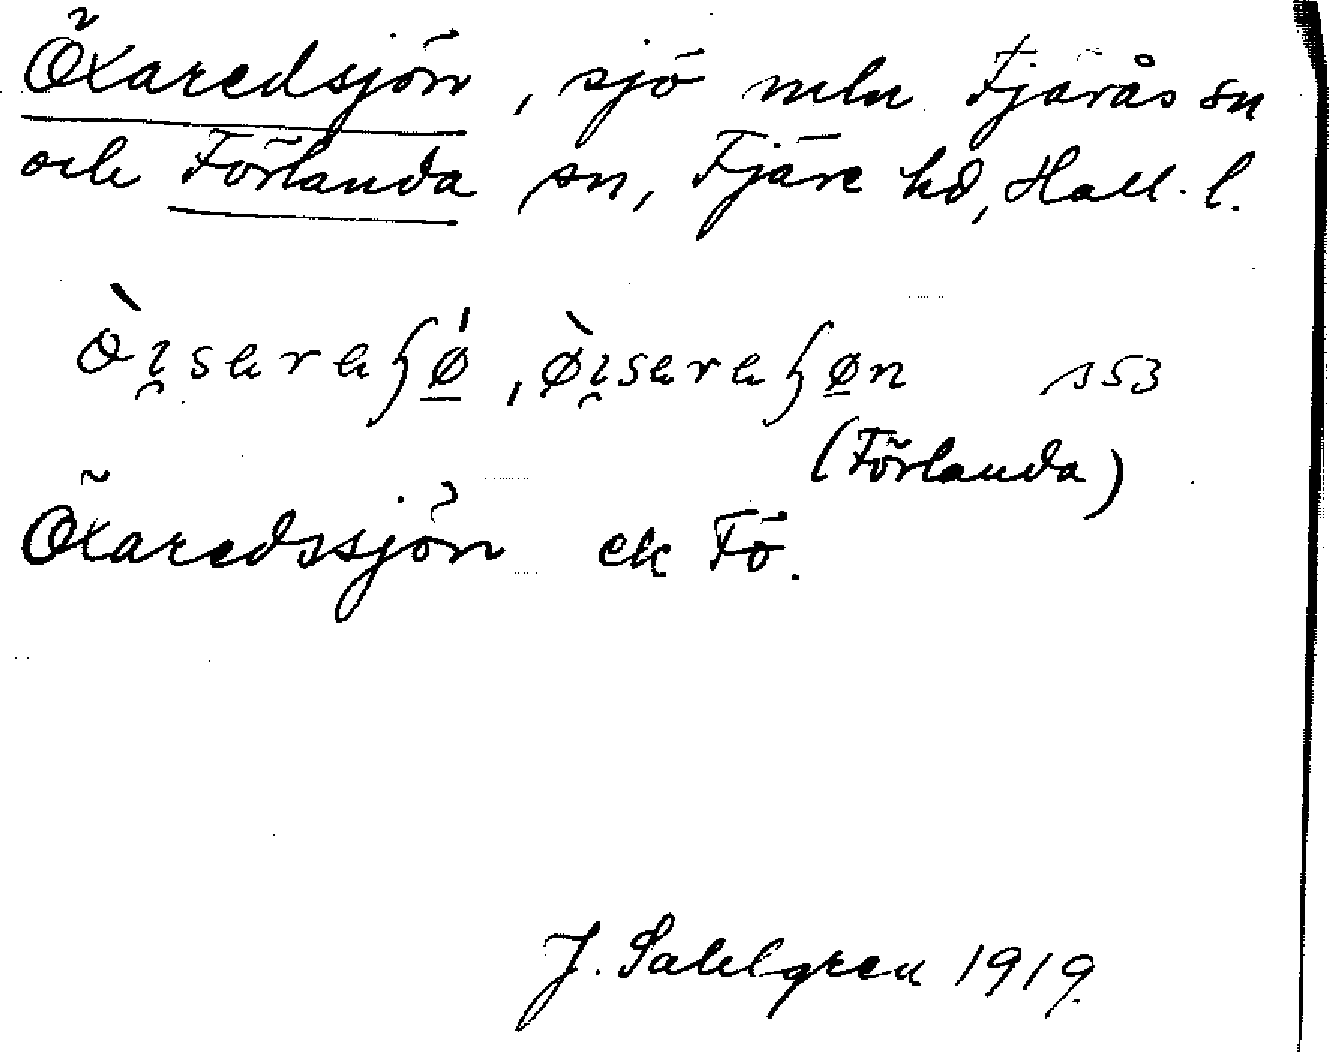 Öxaredsjön, sjö meln Fjärås sn
och Förlanda sn, Fjäre hd, Hall. l.
s53
(Förlanda)
Öxaredssjön ek Fö.
J. Sahlgren 1919